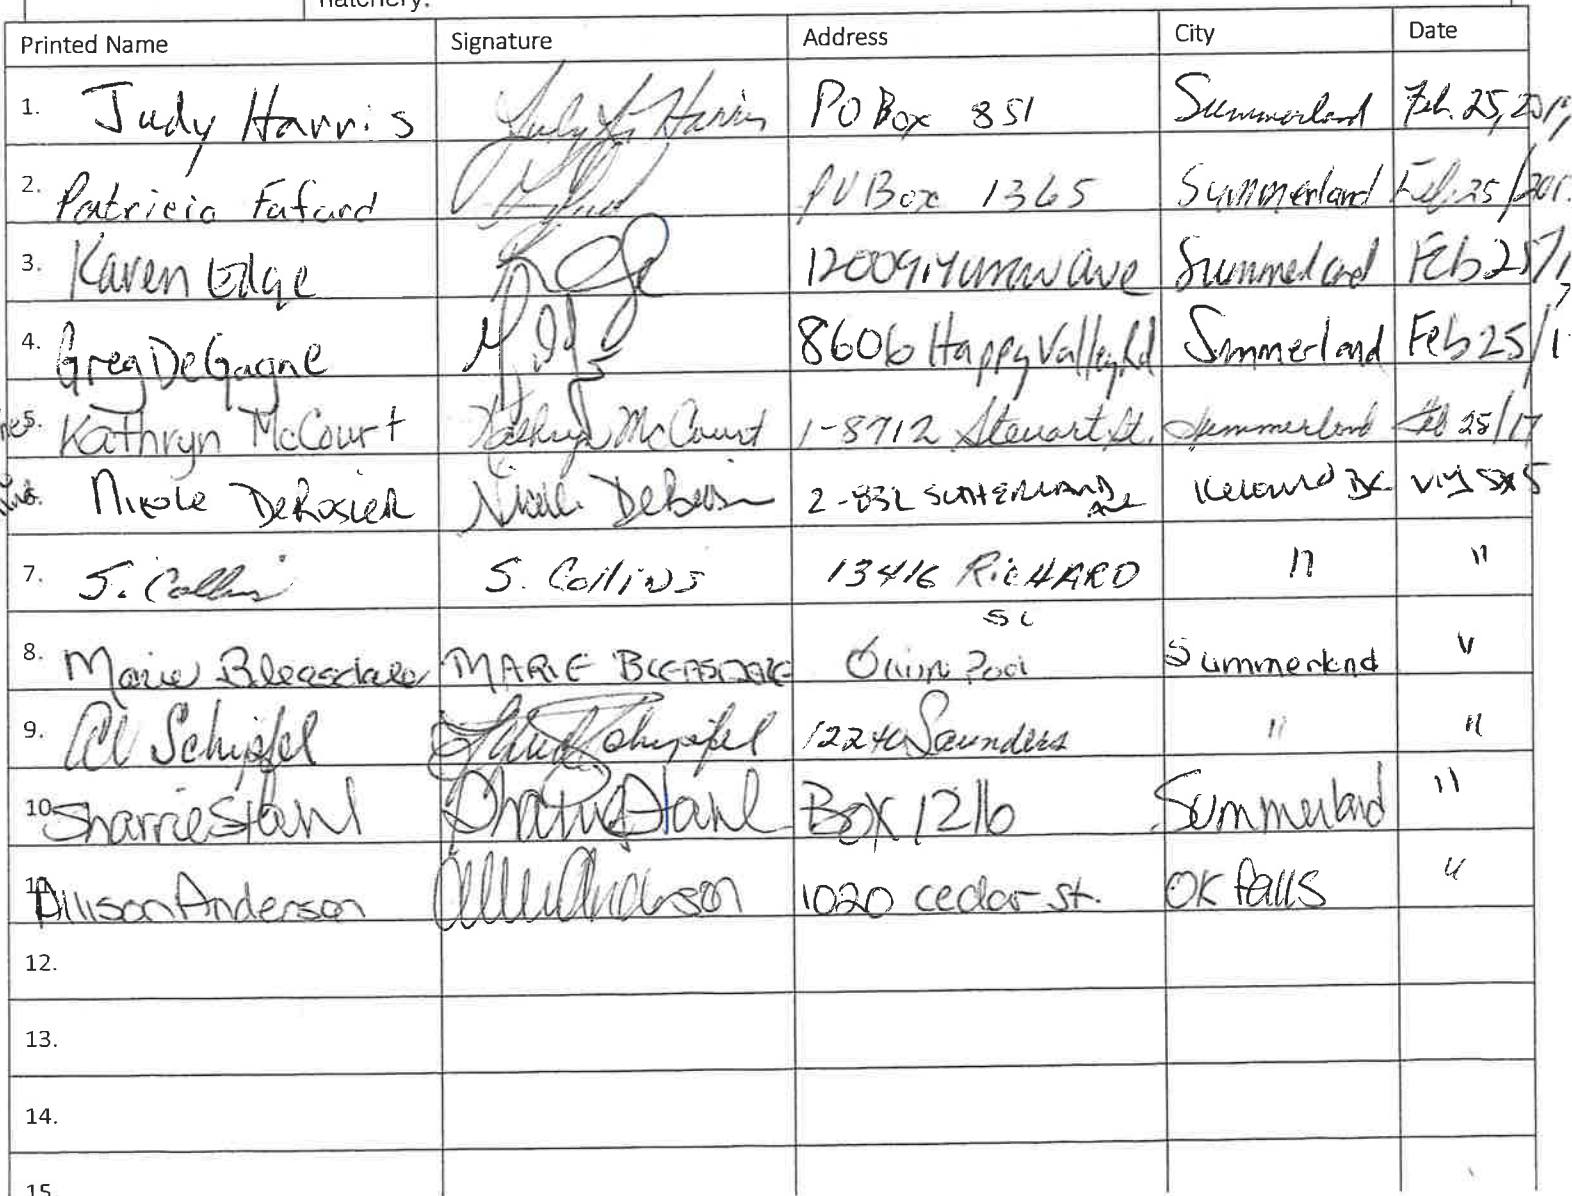 hatchery.
Printed Name Signature Address City Date
1. Judy Harris Judy Harris PO Box 851 Summerland Feb. 25, 201
2. Patricia Fafard PO Box 1365 Summerland Feb. 25/201
3. Karen Edge 12009 Ave Summerland Feb 25/1
4. Greg DeGagne 8606 Happy Valley Rd Summerland Feb 25/1
5. Kathryn McCourt Kathryn McCourt 1-8712 Steuart St. Summerland Feb 25/17
6. Nicole DeRosier Nicole DeRosier 2-832 SUTHERLAND Ave Kelowna BC V1Y 5X5
7. S. Collins S. Collins 13416 RICHARD " "
St
8. Marie Bleasdale MARIE BLEASDALE Summerland "
9. Al Schipfel Schipfel 12240 Saunders " "
10. Sharrie Stahl Sharrie Stahl Box 1216 Summerland "
11. Allison Anderson Anderson 1020 cedar st. OK falls "
12.
13.
14.
15.